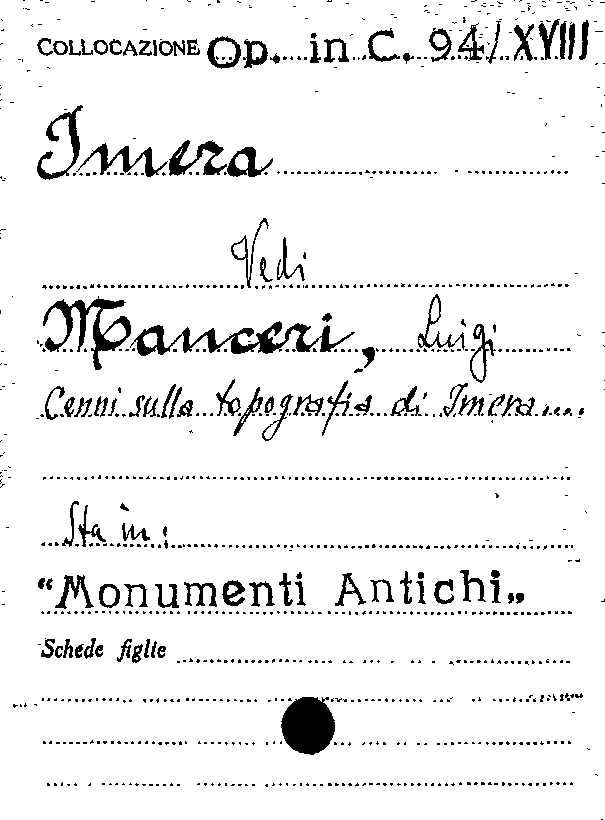 COLLOCAZIONE Op. in C. 94/XVIII
Imera
Vedi
Manceri, Luigi
Cenni sulla topografia di Imera....
Sta in:
“Monumenti Antichi„
Schede figlie